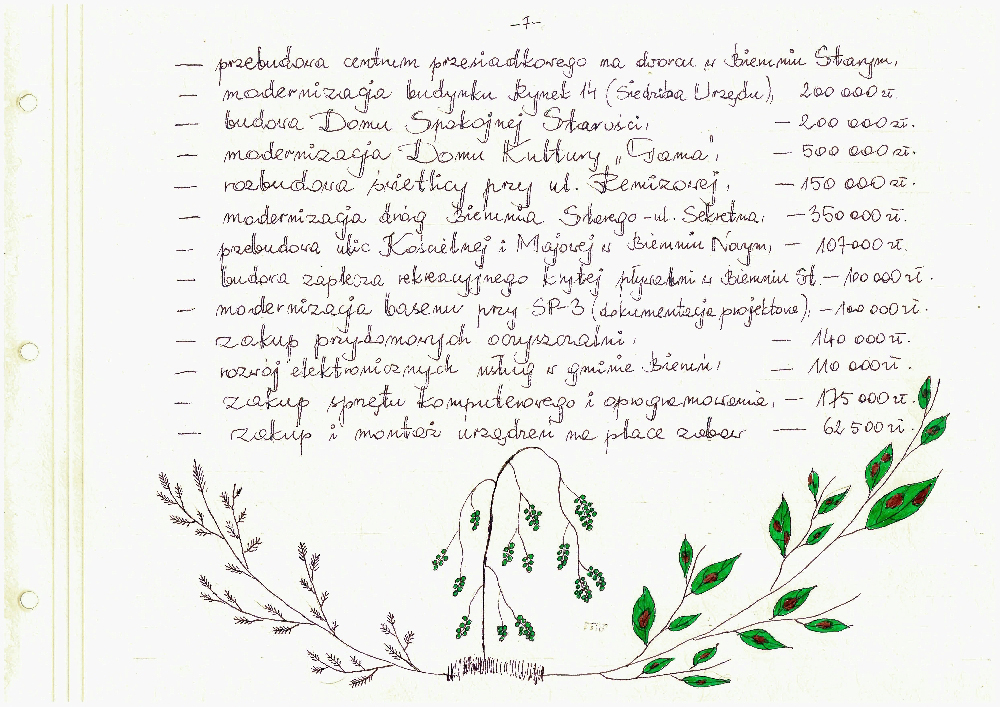 -7-
— przebudowa centrum przesiadkowego na dworcu w Bieruniu Starym,
— modernizacja budynku Rynek 14 (Siedziba Urzędu), 200 000 zł.
— budowa Domu Spokojnej Starości, — 200 000 zł.
— modernizacja Domu Kultury „Gama", — 500 000 zł.
— rozbudowa świetlicy przy ul. Remizowej, — 150 000 zł.
— modernizacja dróg Bierunia Starego - ul. Sekretna, — 350 000 zł.
— przebudowa ulic Kościelnej i Majowej w Bieruniu Nowym, — 107 000 zł.
— budowa zaplecza rekreacyjnego krytej pływalni w Bieruniu St. — 100 000 zł.
— modernizacja basenu przy SP-3 (dokumentacja projektowa), — 100 000 zł.
— zakup przydomowych oczyszczalni, — 140 000 zł.
— rozwój elektronicznych usług w gminie Bieruń, — 110 000 zł.
— zakup sprzętu komputerowego i oprogramowania, — 175 000 zł.
— zakup i montaż urządzeń na place zabaw — 62 500 zł.